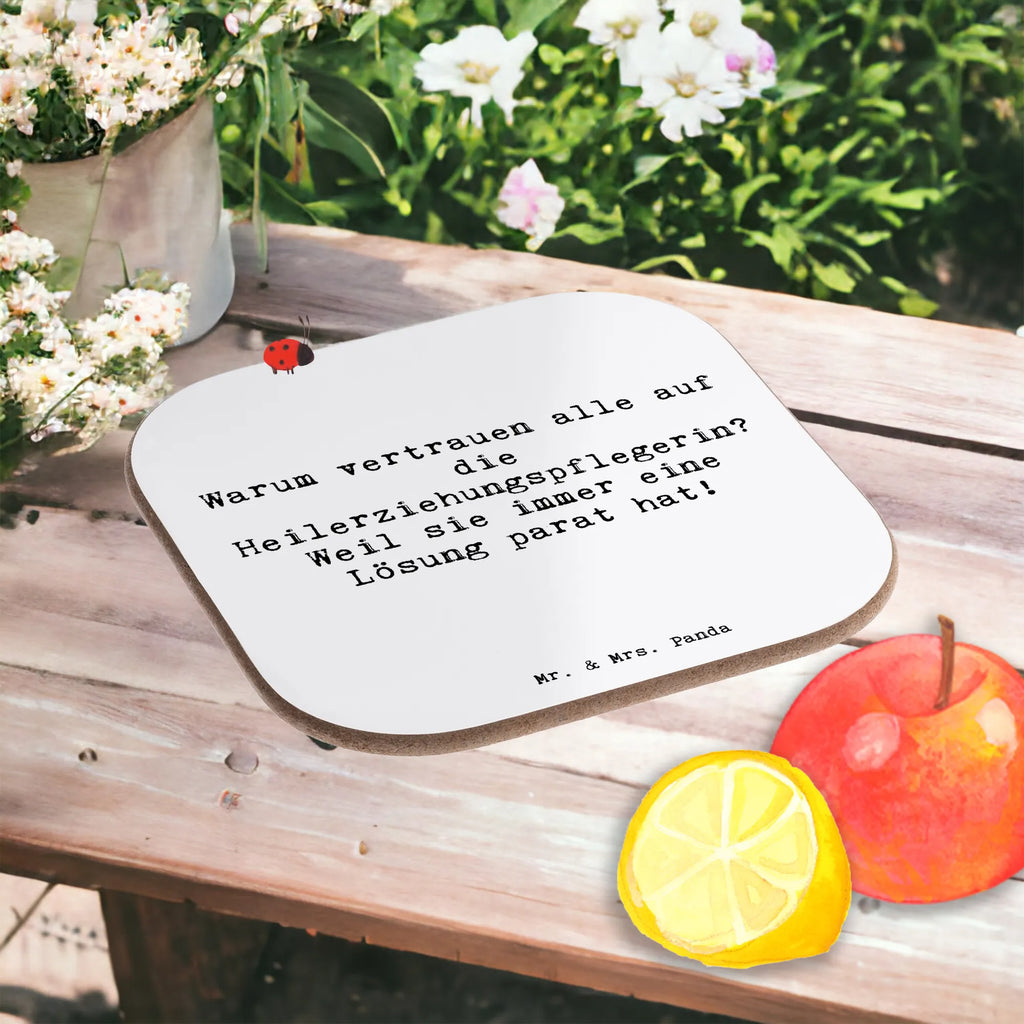 Warum vertrauen alle auf
die
Heilerziehungspflegerin?
Weil sie immer eine
Lösung parat hat!
Mr. & Mrs. Panda